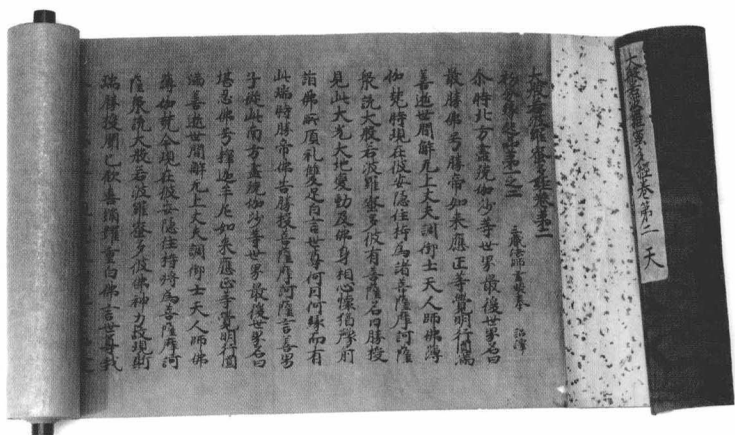 大般若波羅蜜多經卷第二 天
大般若波羅蜜多經卷第二
初分緣起品第一之二
三藏法師玄奘奉 詔譯
尒時北方盡殑伽沙等世界最後世界名曰
最勝佛号勝帝如來應正等覺明行圓滿
善逝世間解无上丈夫調御士天人師佛薄
伽梵時現在彼安隱住持為諸菩薩摩訶薩
衆說大般若波羅蜜多彼有菩薩名曰勝授
見此大光大地變動及佛身相心懷猶豫前
詣佛所頂礼雙足白言世尊何因何緣而有
此瑞時勝帝佛告勝授菩薩摩訶薩言善男
子從此南方盡殑伽沙等世界最後世界名曰
堪忍佛号釋迦牟尼如來應正等覺明行圓
滿善逝世間解无上丈夫調御士天人師佛
薄伽梵今現在彼安隱住持將為菩薩摩訶
薩衆說大般若波羅蜜多彼佛神力故現斯
瑞勝授聞已歡喜踊躍重白佛言世尊我